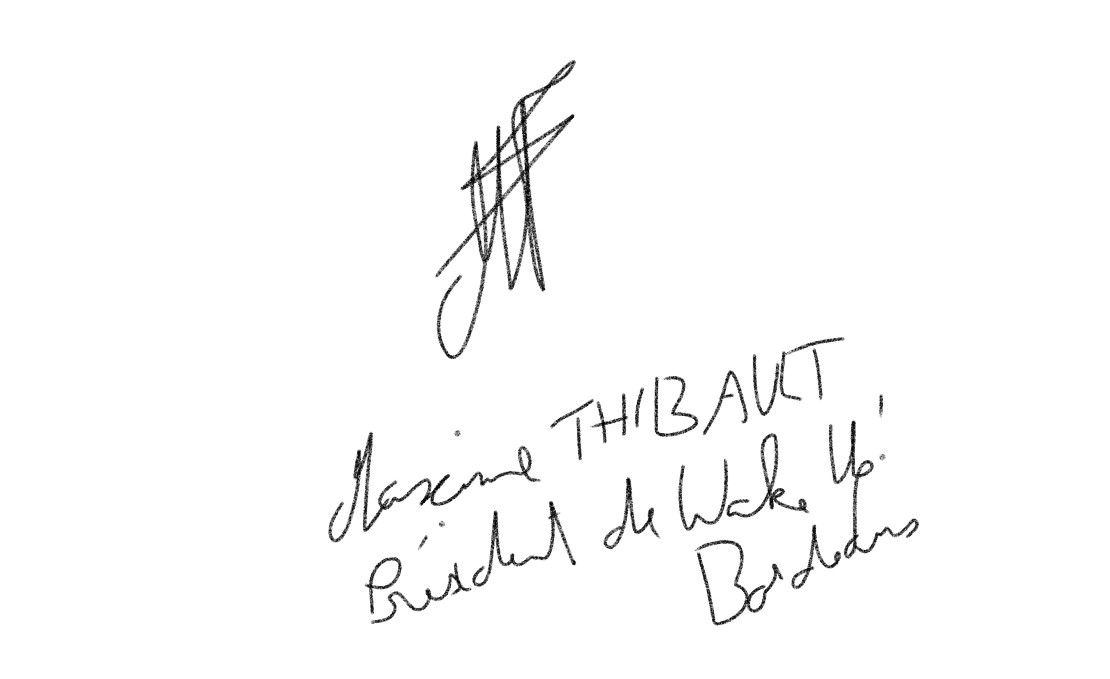 Maxime THIBAULT
Président de Wake Up!
Bordeaux